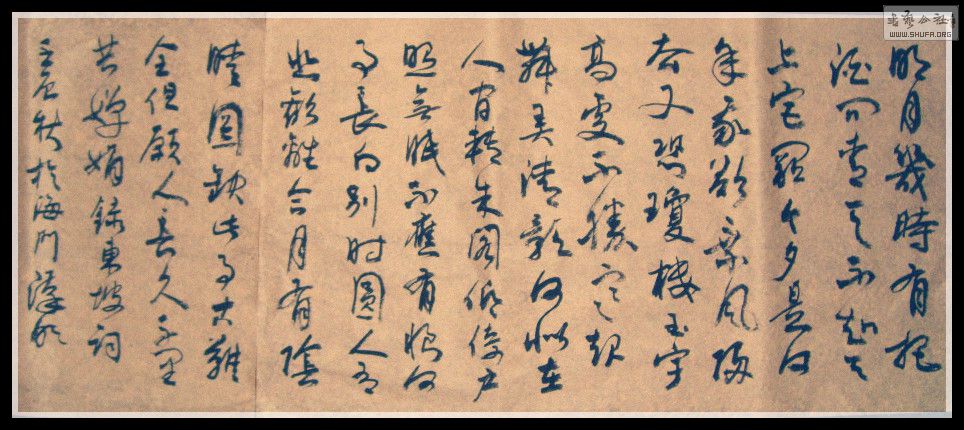 明月幾時有把
酒问青天不知天
上宫闕今夕是何
年我欲乘風歸
去又恐瓊樓玉宇
高處不勝寒起
舞弄清影何似在
人间轉朱閣低绮户
照無眠不應有恨何
事長向别时圓人有
悲歡離合月有陰
晴圓缺此事古難
全但願人長久千里
共嬋娟錄東坡词
秋於海門
書藝公社
WWW.SHUFA.ORG